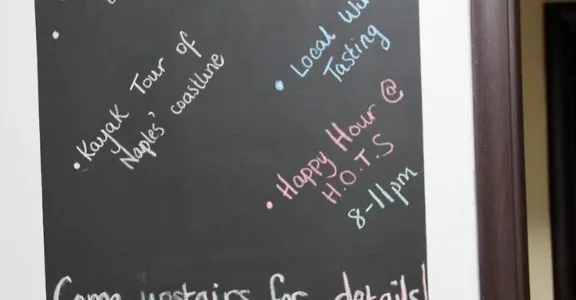 • Kayak Tour of
Naples' coastline
• Local
Tasting
• Happy Hour @
H.O.T.S
8-11pm
Come upstairs for details!